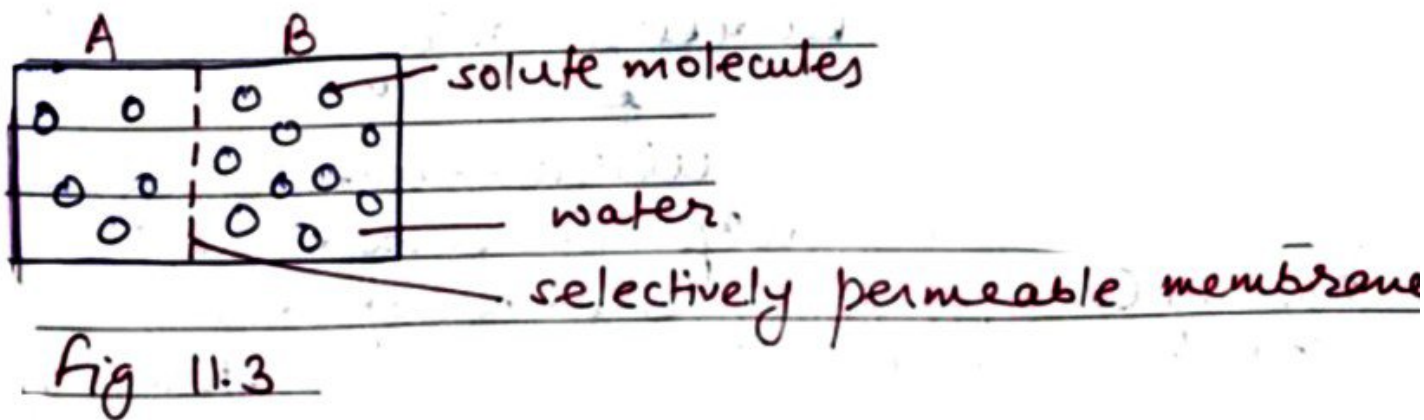 A B
solute molecules
water.
selectively permeable membrane
fig 11.3